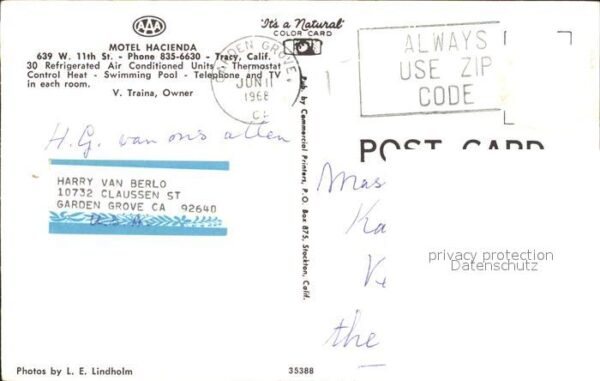 AAA
MOTEL HACIENDA
639 W. 11th St. - Phone 835-6630 - Tracy, Calif.
30 Refrigerated Air Conditioned Units - Thermostat
Control Heat - Swimming Pool - Telephone and TV
in each room.
V. Traina, Owner
"It's a Natural"
COLOR CARD
GARDEN GROVE,
JUN 11
1968
ALWAYS
USE ZIP
CODE
POST CARD
H.G. van ons allen
HARRY VAN BERLO
10732 CLAUSSEN ST
GARDEN GROVE CA 92640
U.S.A.
Pub. by Commercial Printers, P.O. Box 875, Stockton, Calif.
Mas
Ka
the
privacy protection
Datenschutz
Photos by L. E. Lindholm
35388